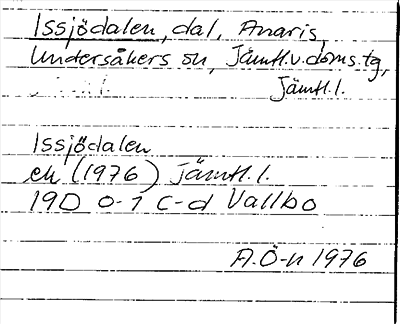 Issjödalen, dal, Anaris,
Undersåkers sn, Jämtl.v.doms.tg,
Jämtl.l.
Issjödalen
ek (1976) Jämtl.l.
19D 0-1 c-d Vallbo
A.Ö-n 1976